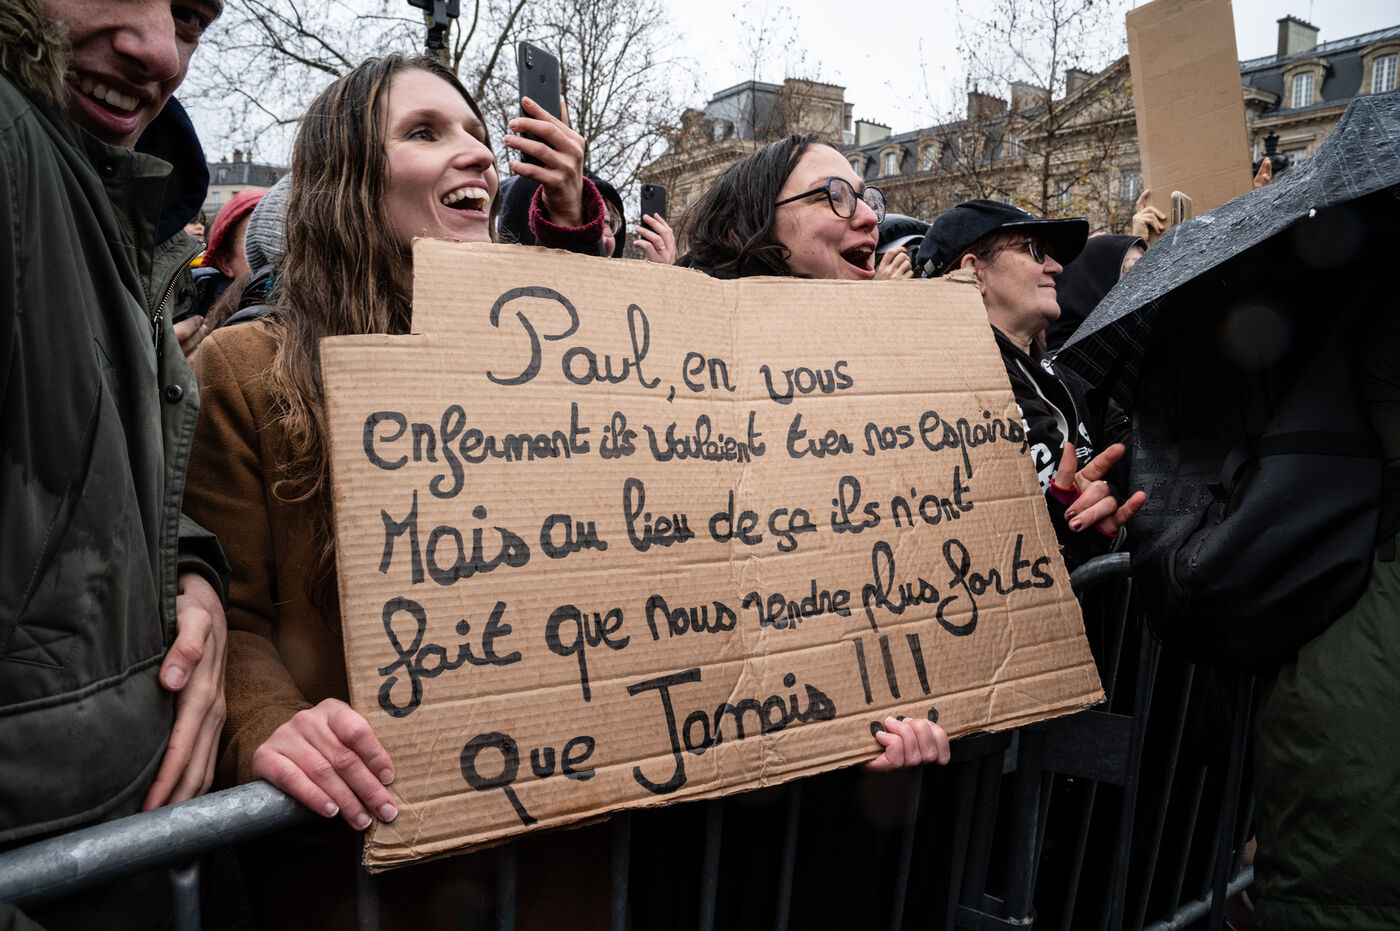 Paul, en vous
enfermant ils voulaient tuer nos espoirs,
Mais au lieu de ça ils n'ont
fait que nous rendre plus forts
que Jamais !!!